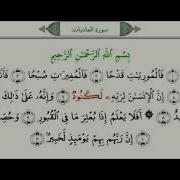 سورة العاديات
بِسْمِ اللَّهِ الرَّحْمَٰنِ الرَّحِيمِ
فَالْمُورِيَٰتِ قَدْحًا ٢ فَالْمُغِيرَٰتِ صُبْحًا ٣
إِنَّ الْإِنسَٰنَ لِرَبِّهِ لَكَنُودٌ ٦ وَإِنَّهُ عَلَىٰ ذَٰلِكَ
٨ أَفَلَا يَعْلَمُ إِذَا بُعْثِرَ مَا فِي الْقُبُورِ ٩
إِنَّ رَبَّهُم بِهِمْ يَوْمَئِذٍ لَّخَبِيرٌ ١١